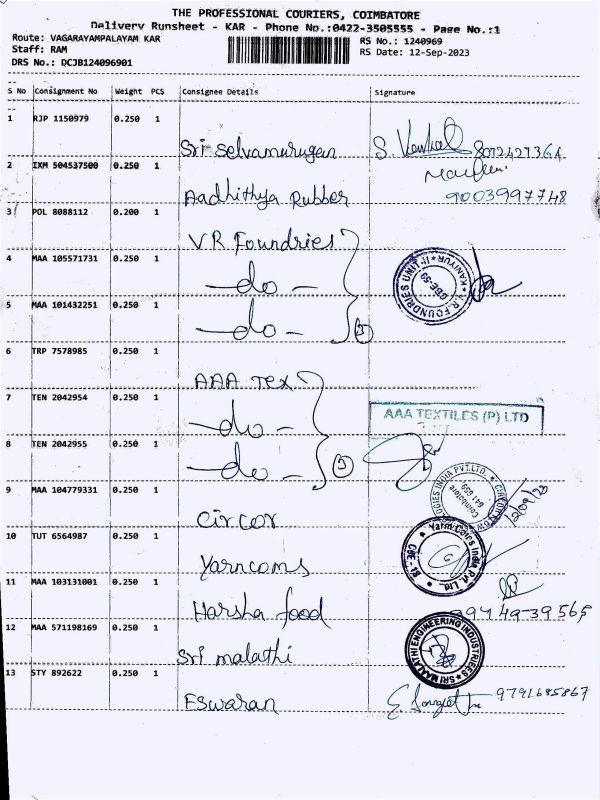 THE PROFESSIONAL COURIERS, COIMBATORE
Delivery Runsheet - KAR - Phone No.:0422-3505555 - Page No.:1
Route: VAGARAYAMPALAYAM KAR
RS No.: 1240969
Staff: RAM
RS Date: 12-Sep-2023
DRS No.: DCJB124096901
S No Consignment No Weight PCS Consignee Details Signature
1 RJP 1150979 0.250 1
Sri Selvamurugan
2 IXM 504537500 0.250 1
Aadhithya Rubber 9003997748
3 POL 8088112 0.200 1
VR Foundries
4 MAA 105571731 0.250 1
-do-
V.R.FOUNDRIES UNIT-II KANIYUR CBE-59
5 MAA 101432251 0.250 1
-do- 3
6 TRP 7578985 0.250 1
AAA Tex
7 TEN 2042954 0.250 1
AAA TEXTILES (P) LTD
-do-
8 TEN 2042955 0.250 1
-do- 3
9 MAA 104779331 0.250 1
Circor
INDIA PVT.LTD. Coimbatore 641 659
12/09/23
10 TUT 6564987 0.250 1
Yarncoms
Yarn Coms India Pvt. Ltd. CBE - 18
11 MAA 103131001 0.250 1
Harsha food
12 MAA 571198169 0.250 1
Sri malathi
SRI MAALATHI ENGINEERING INDUSTRIES
13 STY 892622 0.250 1
Eswaran 9791685867